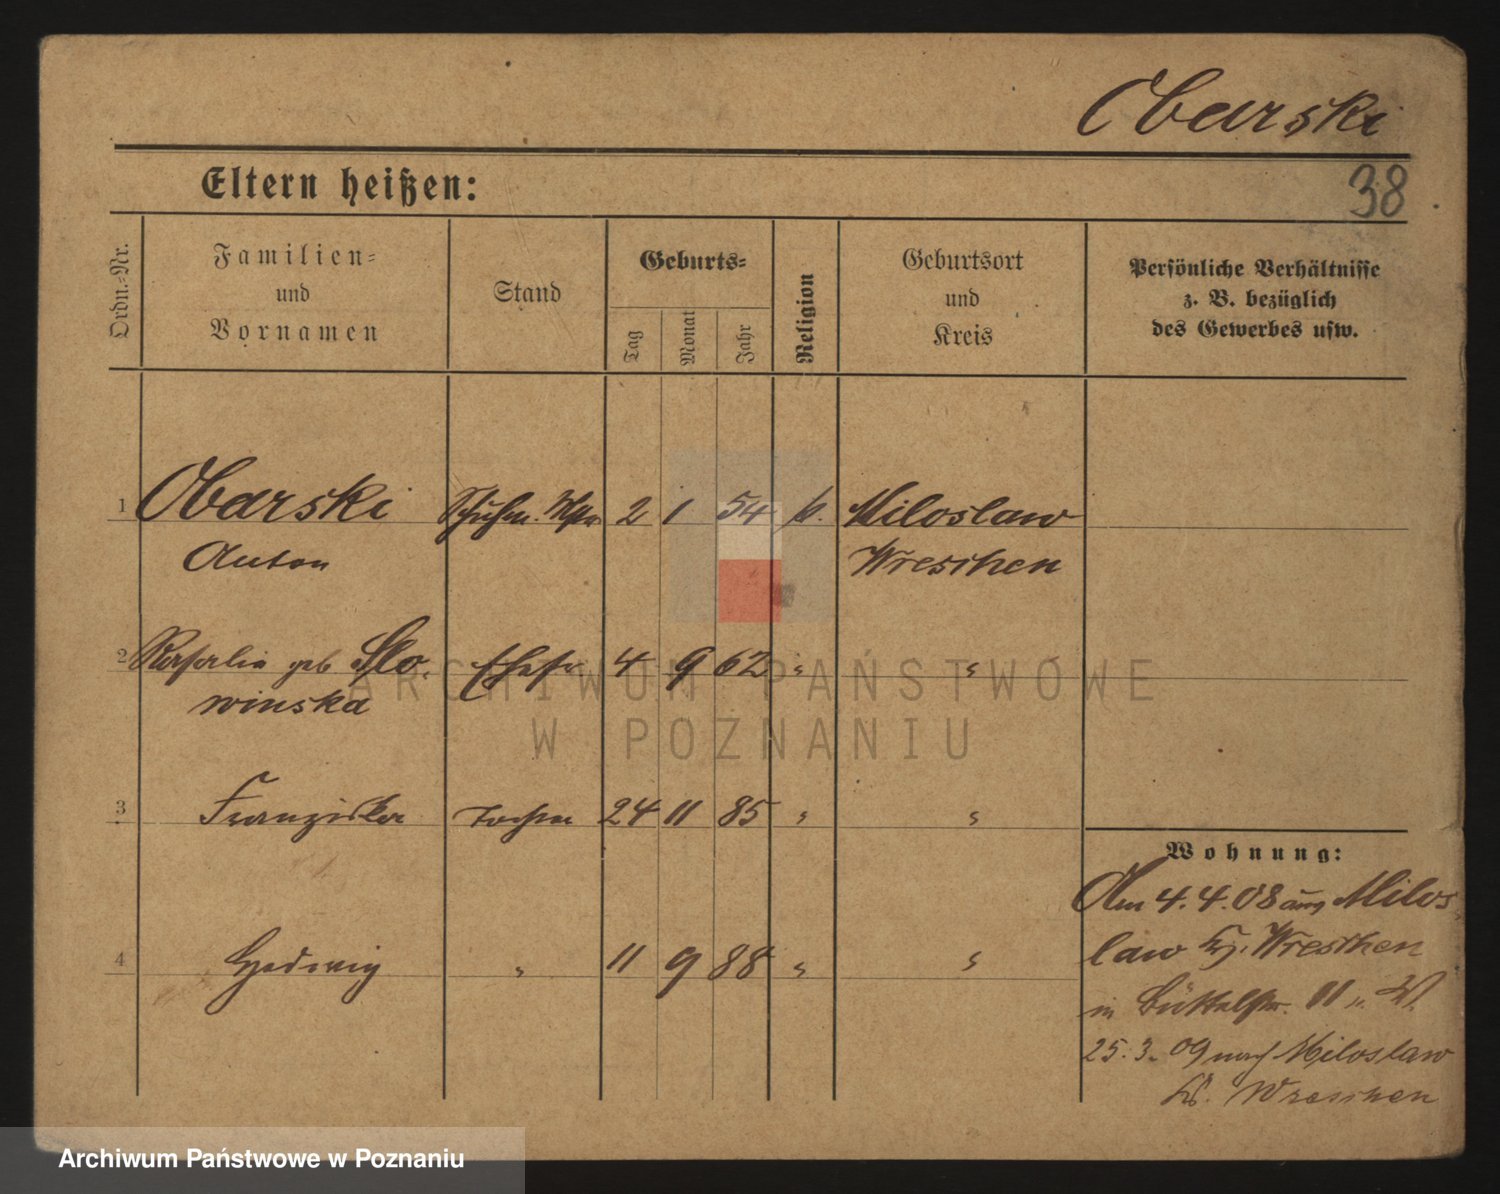 Obarski
38
Eltern heißen:
Ordn.-Nr.
Familien=
und
Vornamen
Stand
Geburts=
Tag
Monat
Jahr
Religion
Geburtsort
und
Kreis
Persönliche Verhältnisse
z. B. bezüglich
des Gewerbes usw.
1 Obarski Schuhm. Mstr 2 1 54 k. Miloslaw
Anton Wreschen
2 Rosalia geb Slo- Ehefr. 4 9 62 " "
winska
3 Franziska Tochter 24 11 85 " "
4 Hedwig " 11 9 88 " "
Wohnung:
Am 4.4.08 aus Milos-
law Kr. Wreschen
in Büttelstr. 11
25.3.09 nach Miloslaw
Kr. Wreschen
ARCHIWUM PAŃSTWOWE
W POZNANIU
Archiwum Państwowe w Poznaniu